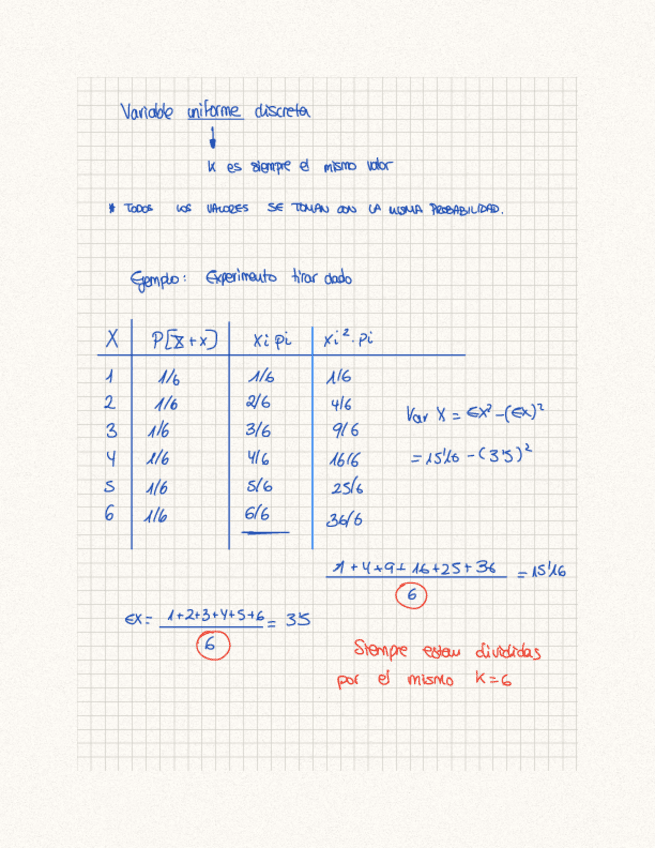 Variable uniforme discreta
K es siempre el mismo valor
* TODOS LOS VALORES SE TOMAN CON LA MISMA PROBABILIDAD.
Ejemplo: Experimento tirar dado
X P[X+x] xi pi xi²·pi
1 1/6 1/6 1/6
2 1/6 2/6 4/6
3 1/6 3/6 9/6
4 1/6 4/6 16/6
5 1/6 5/6 25/6
6 1/6 6/6 36/6
Var X = EX²-(EX)²
= 15'16 - (3'5)²
1+4+9+16+25+36 / 6 = 15'16
EX = 1+2+3+4+5+6 / 6 = 3'5
Siempre estan divididas
por el mismo K=6